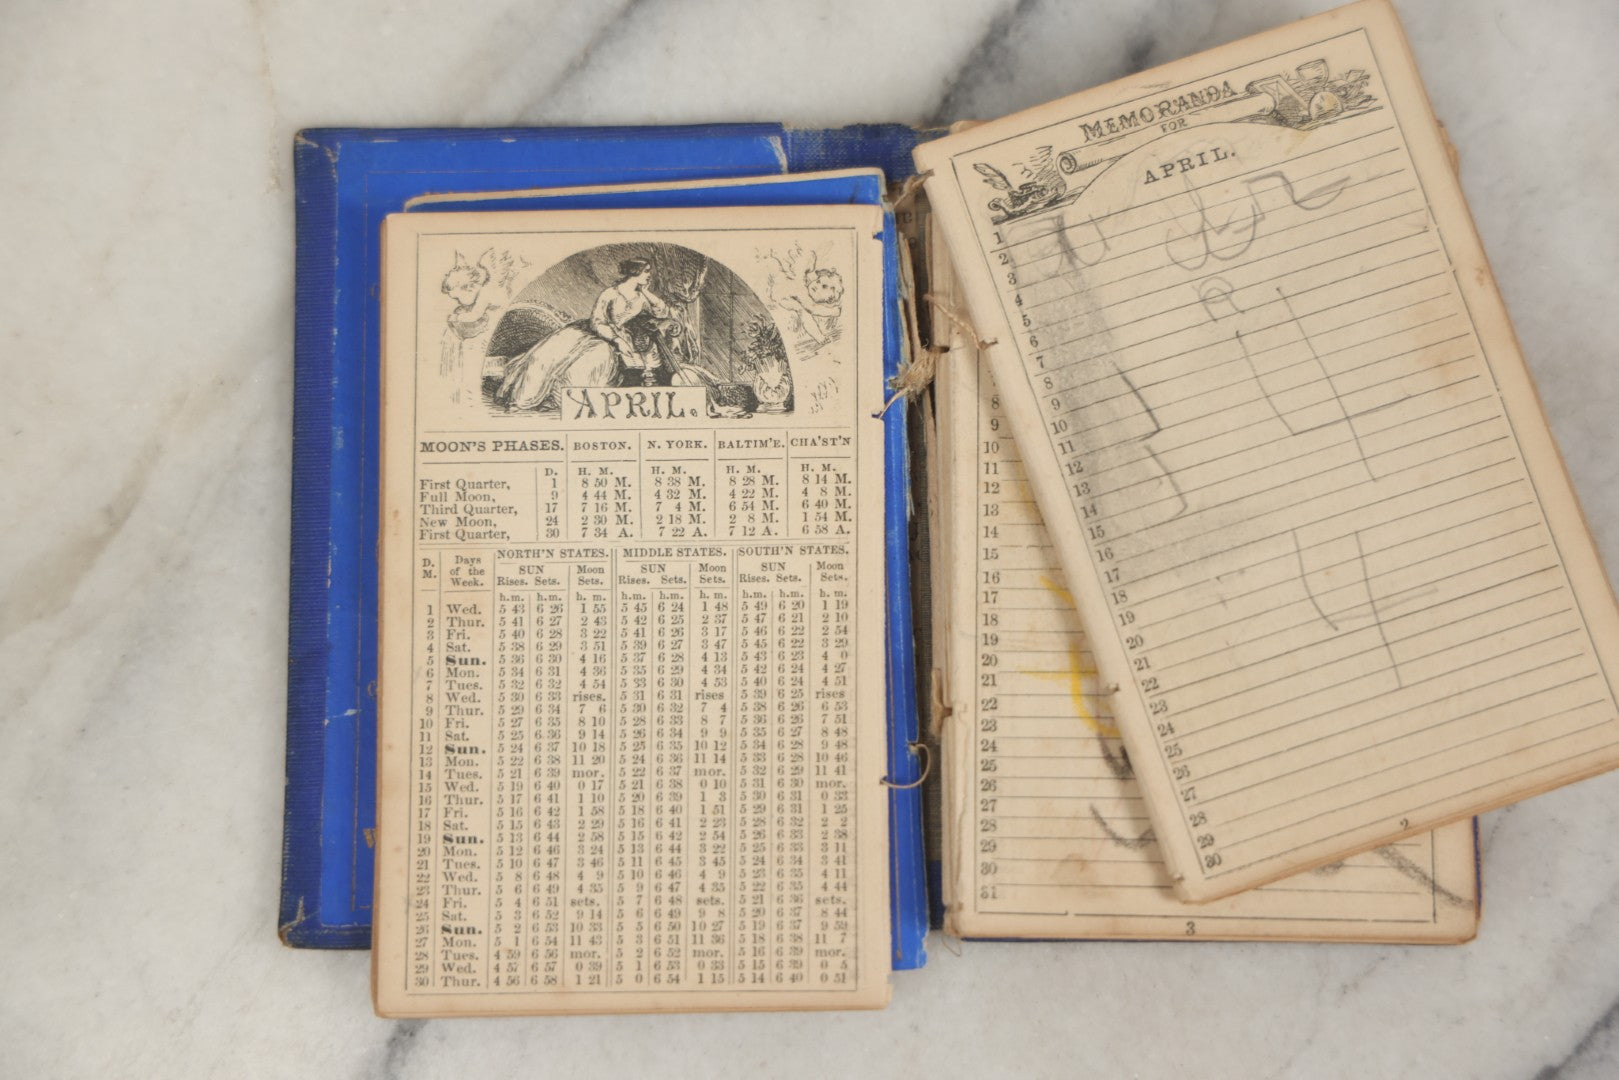 APRIL.
MOON'S PHASES. BOSTON. N. YORK. BALTIM'E. CHA'ST'N
D. H. M. H. M. H. M. H. M.
First Quarter, 1 8 50 M. 8 38 M. 8 28 M. 8 14 M.
Full Moon, 9 4 44 M. 4 32 M. 4 22 M. 4 8 M.
Third Quarter, 17 7 16 M. 7 4 M. 6 54 M. 6 40 M.
New Moon, 24 2 30 M. 2 18 M. 2 8 M. 1 54 M.
First Quarter, 30 7 34 A. 7 22 A. 7 12 A. 6 58 A.
D. M. Days of the Week. NORTH'N STATES. MIDDLE STATES. SOUTH'N STATES.
SUN Moon SUN Moon SUN Moon
Rises. Sets. Sets. Rises. Sets. Sets. Rises. Sets. Sets.
h.m. h.m. h. m. h.m. h.m. h. m. h.m. h.m. h. m.
1 Wed. 5 43 6 26 1 55 5 45 6 24 1 48 5 49 6 20 1 19
2 Thur. 5 41 6 27 2 43 5 42 6 25 2 37 5 47 6 21 2 10
3 Fri. 5 40 6 28 3 22 5 41 6 26 3 17 5 46 6 22 2 54
4 Sat. 5 38 6 29 3 51 5 39 6 27 3 47 5 45 6 22 3 29
5 Sun. 5 36 6 30 4 16 5 37 6 28 4 13 5 43 6 23 4 0
6 Mon. 5 34 6 31 4 36 5 35 6 29 4 34 5 42 6 24 4 27
7 Tues. 5 32 6 32 4 54 5 33 6 30 4 53 5 40 6 24 4 51
8 Wed. 5 30 6 33 rises. 5 31 6 31 rises 5 39 6 25 rises
9 Thur. 5 29 6 34 7 6 5 30 6 32 7 4 5 38 6 26 6 53
10 Fri. 5 27 6 35 8 10 5 28 6 33 8 7 5 36 6 26 7 51
11 Sat. 5 25 6 36 9 14 5 26 6 34 9 9 5 35 6 27 8 48
12 Sun. 5 24 6 37 10 18 5 25 6 35 10 12 5 34 6 28 9 48
13 Mon. 5 22 6 38 11 20 5 24 6 36 11 14 5 33 6 28 10 46
14 Tues. 5 21 6 39 mor. 5 22 6 37 mor. 5 32 6 29 11 41
15 Wed. 5 19 6 40 0 17 5 21 6 38 0 10 5 31 6 30 mor.
16 Thur. 5 17 6 41 1 10 5 20 6 39 1 3 5 30 6 31 0 33
17 Fri. 5 16 6 42 1 58 5 18 6 40 1 51 5 29 6 31 1 25
18 Sat. 5 15 6 43 2 29 5 16 6 41 2 23 5 28 6 32 2 2
19 Sun. 5 13 6 44 2 58 5 15 6 42 2 54 5 26 6 33 2 38
20 Mon. 5 12 6 46 3 24 5 13 6 44 3 22 5 25 6 33 3 11
21 Tues. 5 10 6 47 3 46 5 11 6 45 3 45 5 24 6 34 3 41
22 Wed. 5 8 6 48 4 9 5 10 6 46 4 9 5 23 6 35 4 11
23 Thur. 5 6 6 49 4 35 5 9 6 47 4 35 5 22 6 35 4 44
24 Fri. 5 4 6 51 sets. 5 7 6 48 sets. 5 21 6 36 sets.
25 Sat. 5 3 6 52 9 14 5 6 6 49 9 8 5 20 6 37 8 44
26 Sun. 5 2 6 53 10 33 5 5 6 50 10 27 5 19 6 37 9 59
27 Mon. 5 1 6 54 11 43 5 3 6 51 11 36 5 18 6 38 11 7
28 Tues. 4 59 6 56 mor. 5 2 6 52 mor. 5 16 6 39 mor.
29 Wed. 4 57 6 57 0 39 5 1 6 53 0 33 5 15 6 39 0 5
30 Thur. 4 56 6 58 1 21 5 0 6 54 1 15 5 14 6 40 0 51
MEMORANDA
FOR
APRIL.
1
2
3
4
5
6
7
8
9
10
11
12
13
14
15
16
17
18
19
20
21
22
23
24
25
26
27
28
29
30
2
8
9
10
11
12
13
14
15
16
17
18
19
20
21
22
23
24
25
26
27
28
29
30
31
3